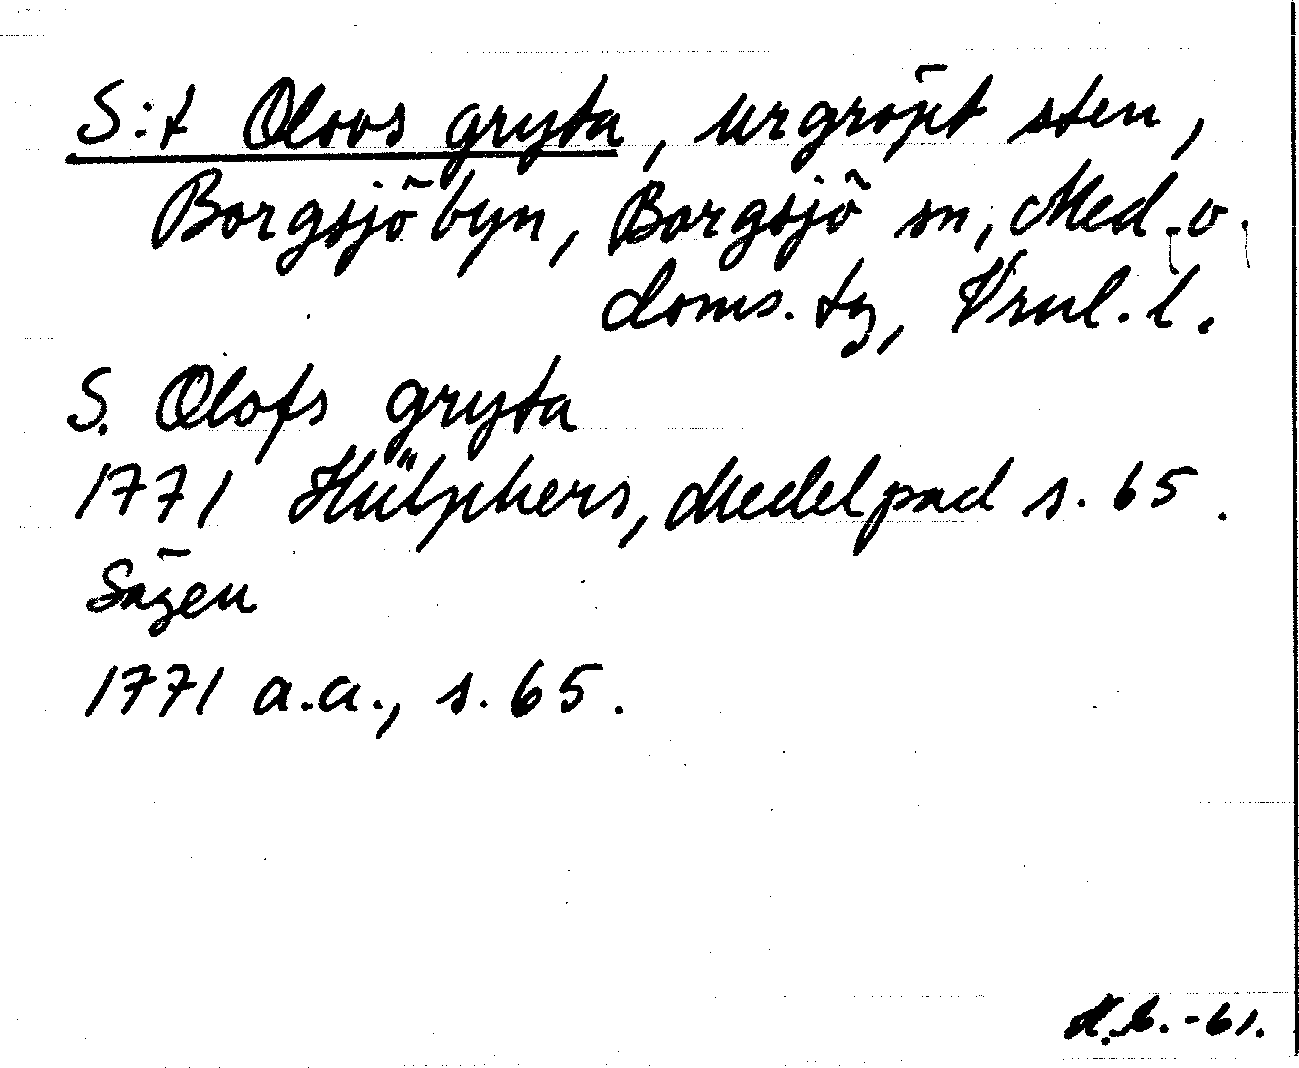 S:t Olovs gryta, urgröpt sten,
Borgsjöbyn, Borgsjö sn, Med.v.
doms. tg, Vrnl. l.
S. Olofs gryta
1771 Hülphers, Medelpad s. 65.
Sägen
1771 a.a., s. 65.
-61.